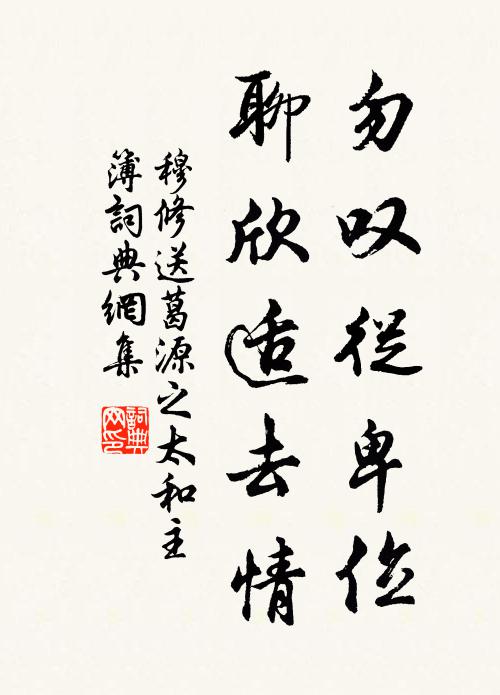 勿叹從卑位
聊欣适去情
穆修送葛源之太和主
簿詞典網集
詞典
网印